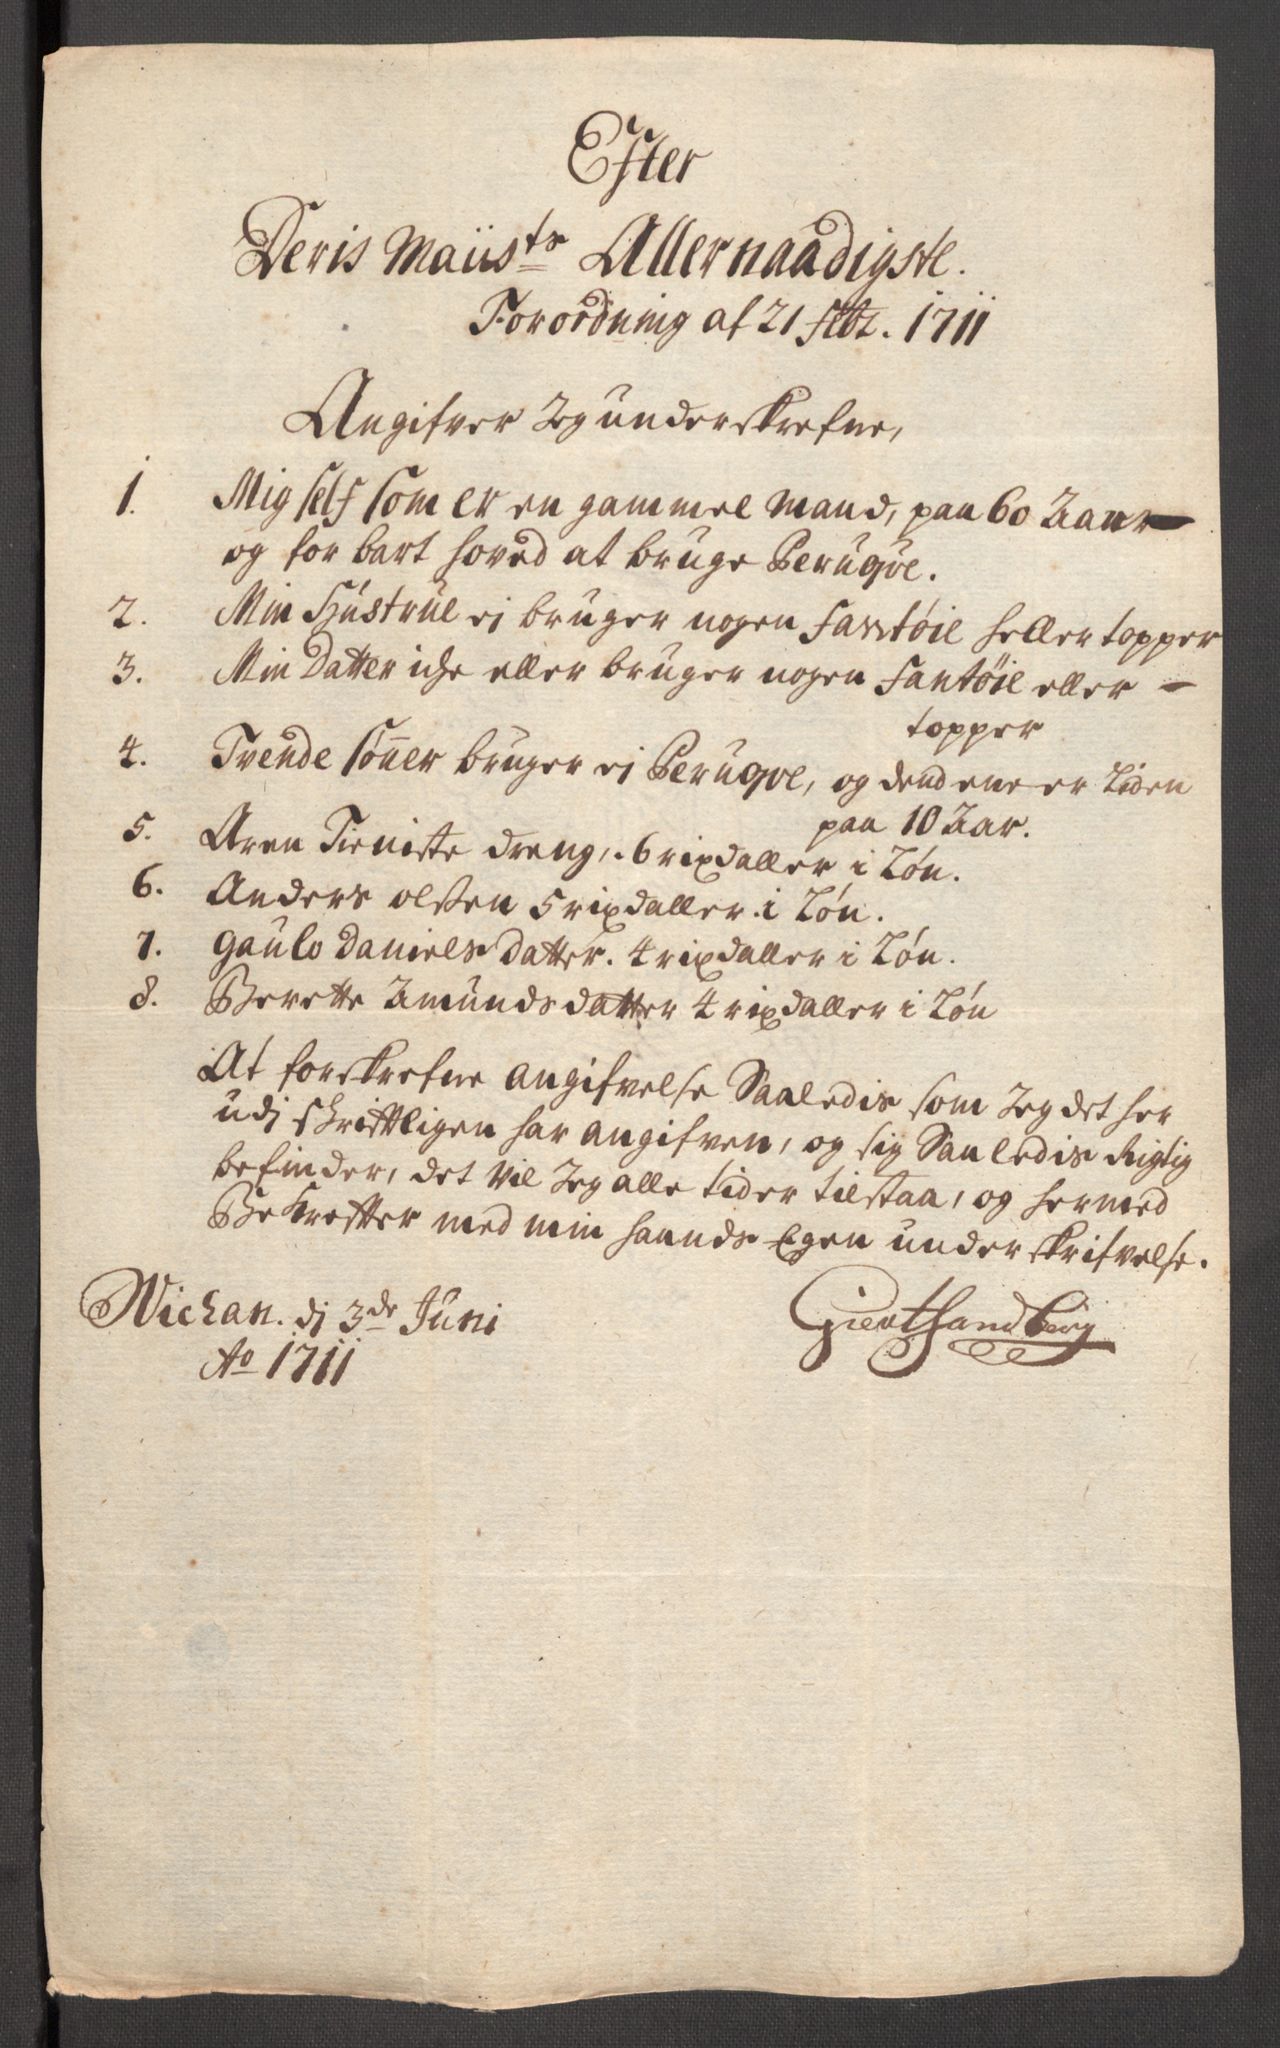 Efter
Deris Maiists Allernaadigste.
Forordning af 21 febr. 1711
Angifver Jeg underskrefne,
1. Mig self som er en gammel Mand, paa 60 Aar
og for bart hoved at bruge Peruqve.
2. Min Hustrue ej bruger nogen Fantøie heller topper
3. Min Datter iche eller bruger nogen Fantøie eller -
topper
4. Tvende sønner bruger ej Peruqve, og dend ene er Liden
paa 10 Aar.
5. Aren Tieniste dreng, 6 rixdaller i Løn.
6. Anders olsen 5 rixdaller i Løn.
7. Gaulo Daniels Datter. 4 rixdaller i Løn.
8. Berette Amunds datter 4 rixdaller i Løn
At forskrefne angifvelse Saaledis som Jeg det her
udj skrifttligen har angifven, og sig Saaledis Rigtig
befinder, det vil Jeg alle tider tilstaa, og hermed
Bekreffter med min haands Egen underskrifvelse.
Wichan. dj 3de Juni
Ao 1711
Giert Sandberg